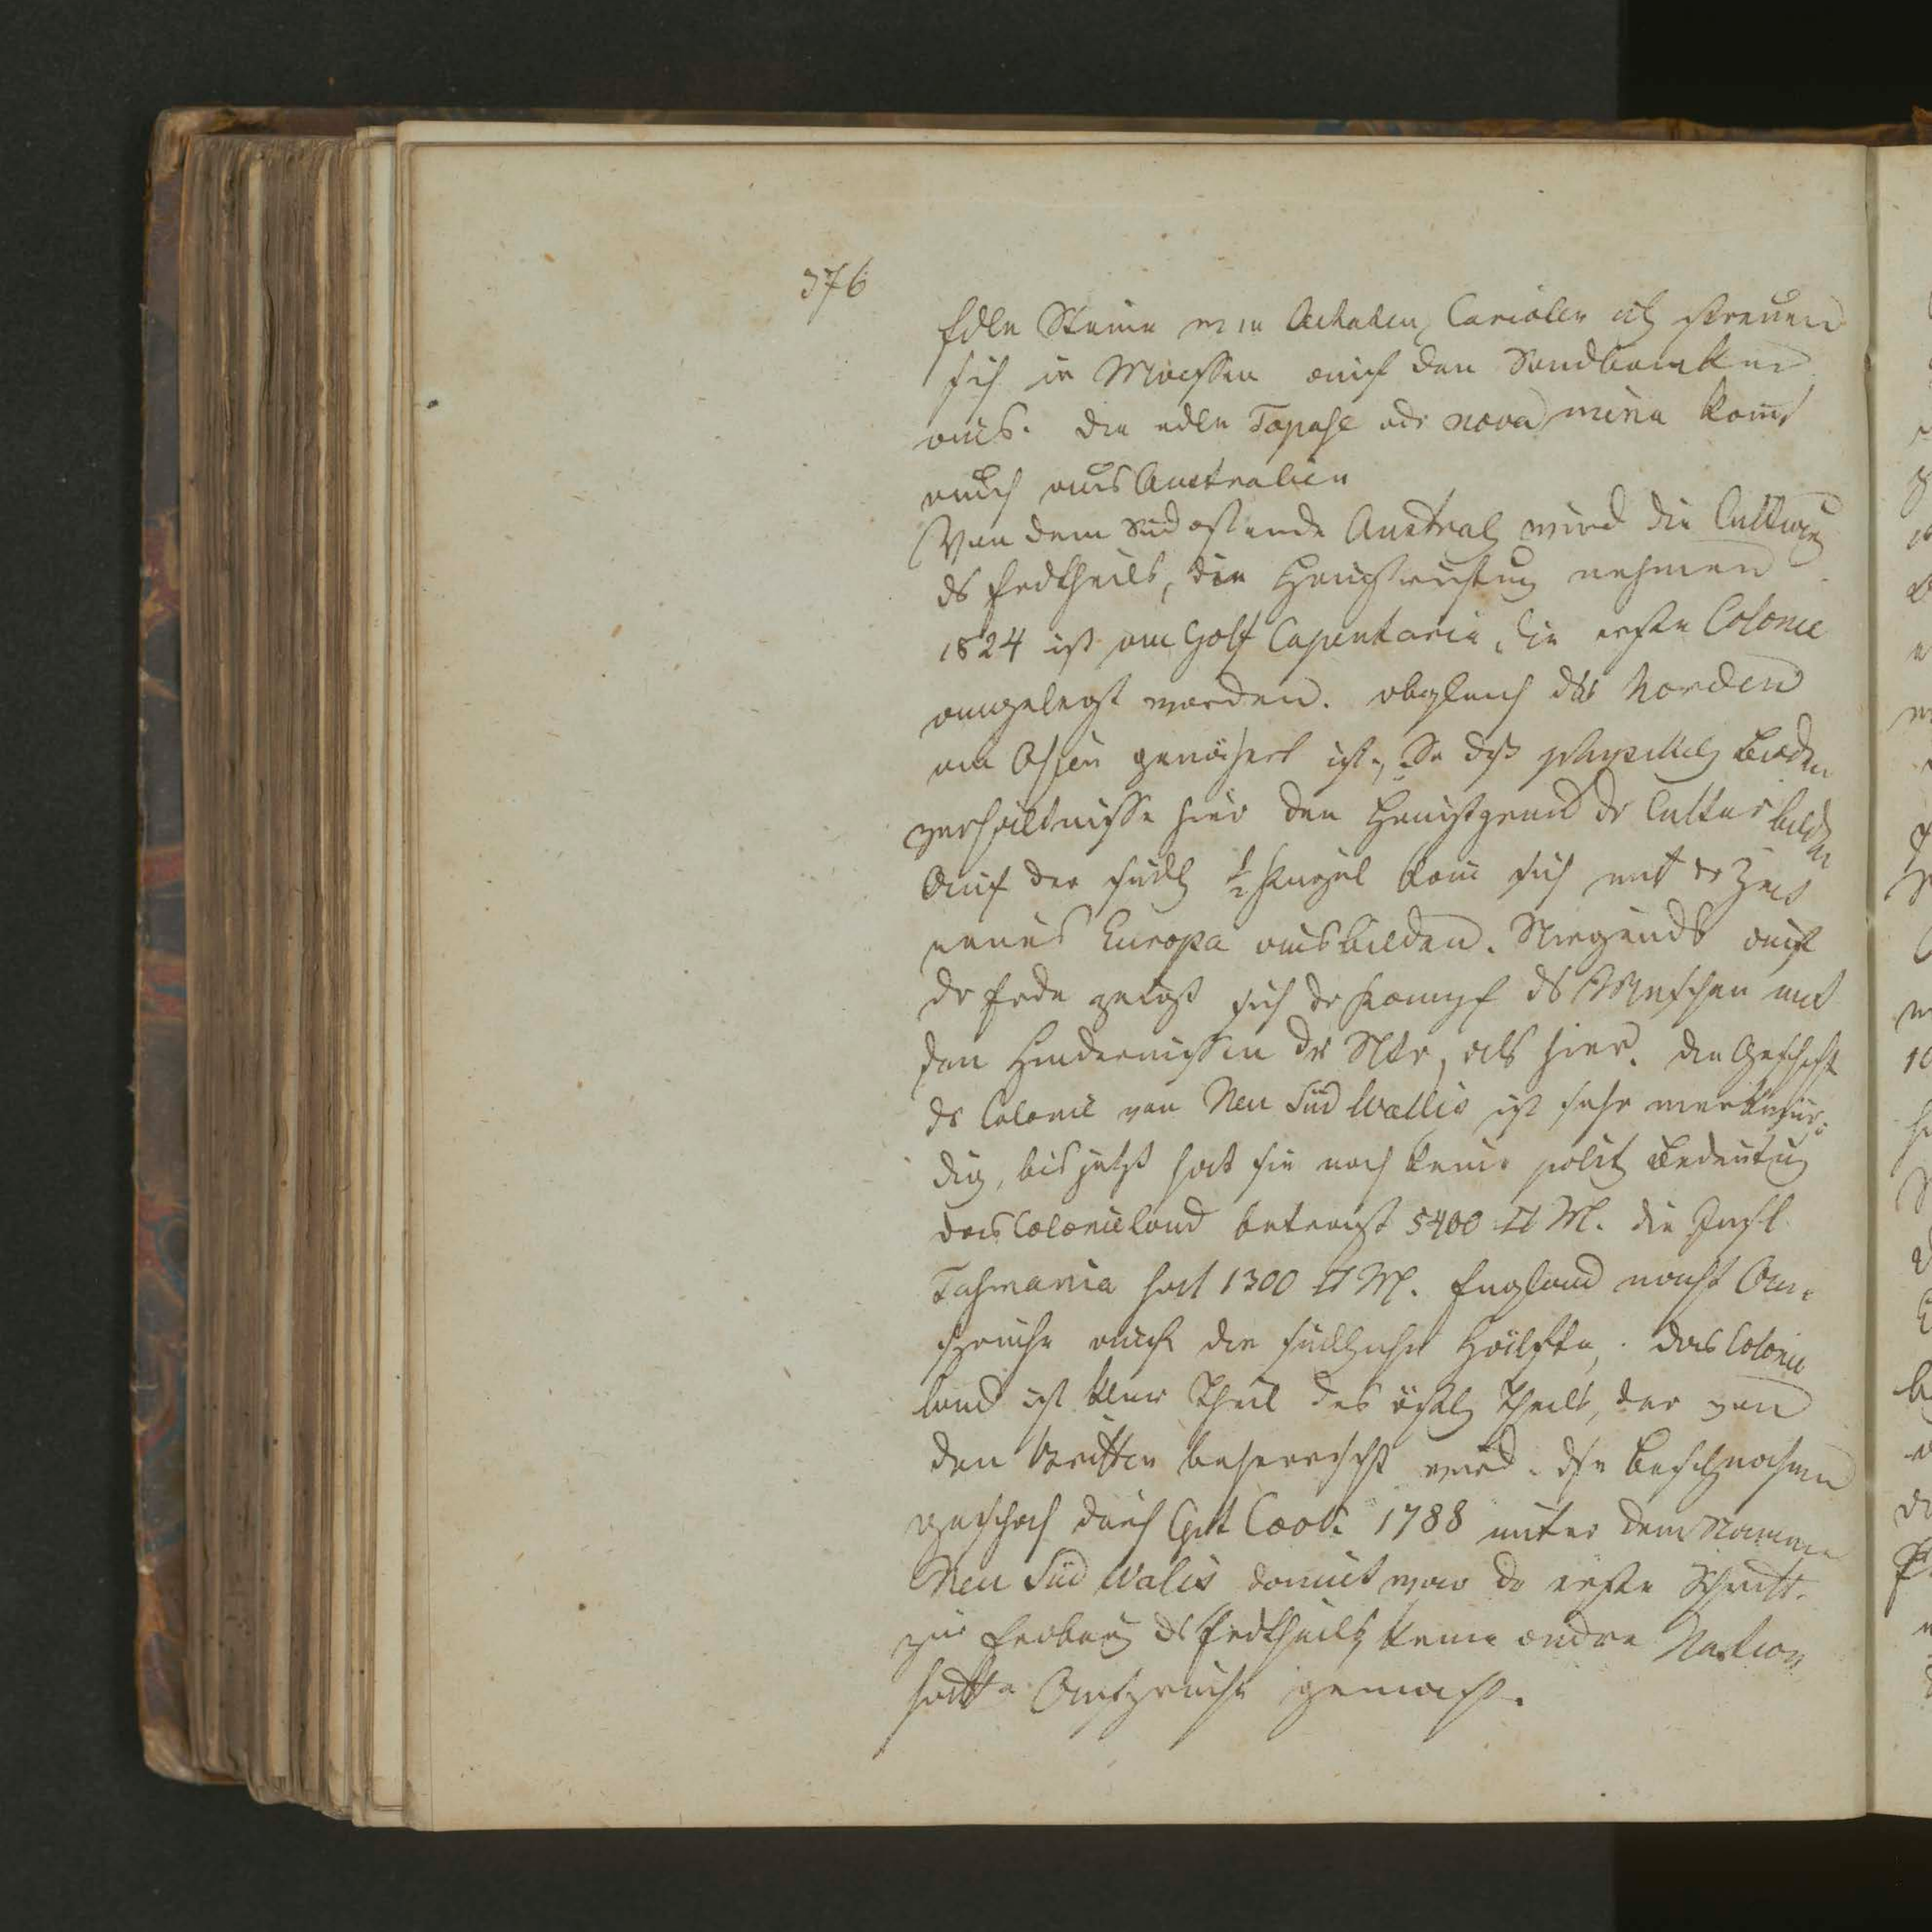 376
Edle Steine wie Achaten, Carioler etc streuen
sich in Massen auf den Sandbanken
aus. Die edle Topase od nova mina komt
auch aus Australien
Von dem Südostende Austral wird die Cultur
ds Erdtheils, die Hauptrichtung nehmen
1824 ist am Golf Capentaria, die erste Colonie
angelegt worden. obgleich das Norden
an Asien genähert ist, So dß physikal Boden
verhältnisse hier den Hauptgrund dr Cultur bilden
Auf der südl ½ kugel kann sich mit dr Zeit
neues Europa ausbilden. Nirgends auf
dr Erde zeigt sich dr Kampf ds Menschen mit
den Hindernissen dr Ntr, als hier. Die Geschicht
ds Colonie von Neu Süd Wallis ist sehr merkwür-
dig, bis jetzt hat sie noch keine polit Bedeutung
das Colonieland beträgt 5400 □ M. die Insl
Tasmania hat 1300 □ M. England macht An-
sprüche auf die südliche Hälfte, das Colonie
land ist klein Theil des östl Theils, der von
den Britten beherrscht wird. Die Besitznahme
geschah durch Cpt Cook 1788 unter dem Namen
Neu Süd Walis damit war dr erste Schritt
zur Erobrung ds Erdtheils keine andre Nation
hatte Ansprüche gemacht.